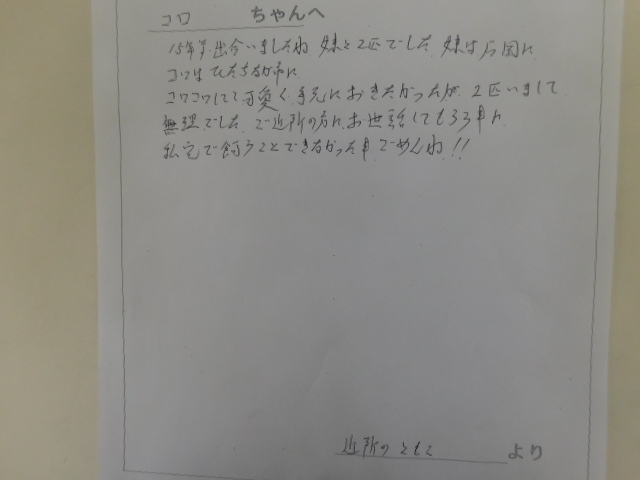 コロ ちゃんへ
15年前出合いましたね 妹と2匹でした 妹は石岡に
コロはひたちなか市に
コロコロしてて可愛く手元におきたかったが 2匹いまして
無理でした ご近所の方にお世話してもらう事に
私宅で飼うことできなかった事ごめんね!!
近所のともこ より